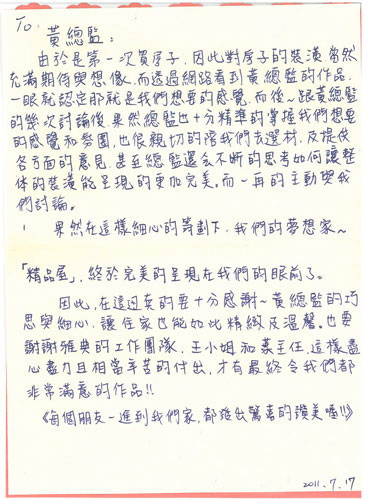 To:
黃總監：
由於是第一次買房子，因此對房子的裝潢，當然
充滿期待與想像，而透過網路看到黃總監的作品，
一眼就認定那就是我們想要的感覺，而後~跟黃總監
的幾次討論後，果然總監也十分精準的掌握我們想要
的感覺和氛圍，也很親切的陪我們去選材，及提供
各方面的意見，甚至總監還會不斷的思考如何讓整
體的裝潢能呈現的更加完美。而一再的主動與我
們討論。
果然在這樣細心的籌劃下，我們的夢想家~
「精品屋」，終於完美的呈現在我們的眼前了。
因此，在這邊真的要十分感謝~黃總監的巧
思與細心，讓住家也能如此精緻及溫馨。也要
謝謝雅典的工作團隊，王小姐和葉主任，這樣盡
心盡力且相當辛苦的付出，才有最終令我們都
非常滿意的作品!!
《每個朋友一進到我們家，都發出驚喜的讚美喔!!》
2011.7.17